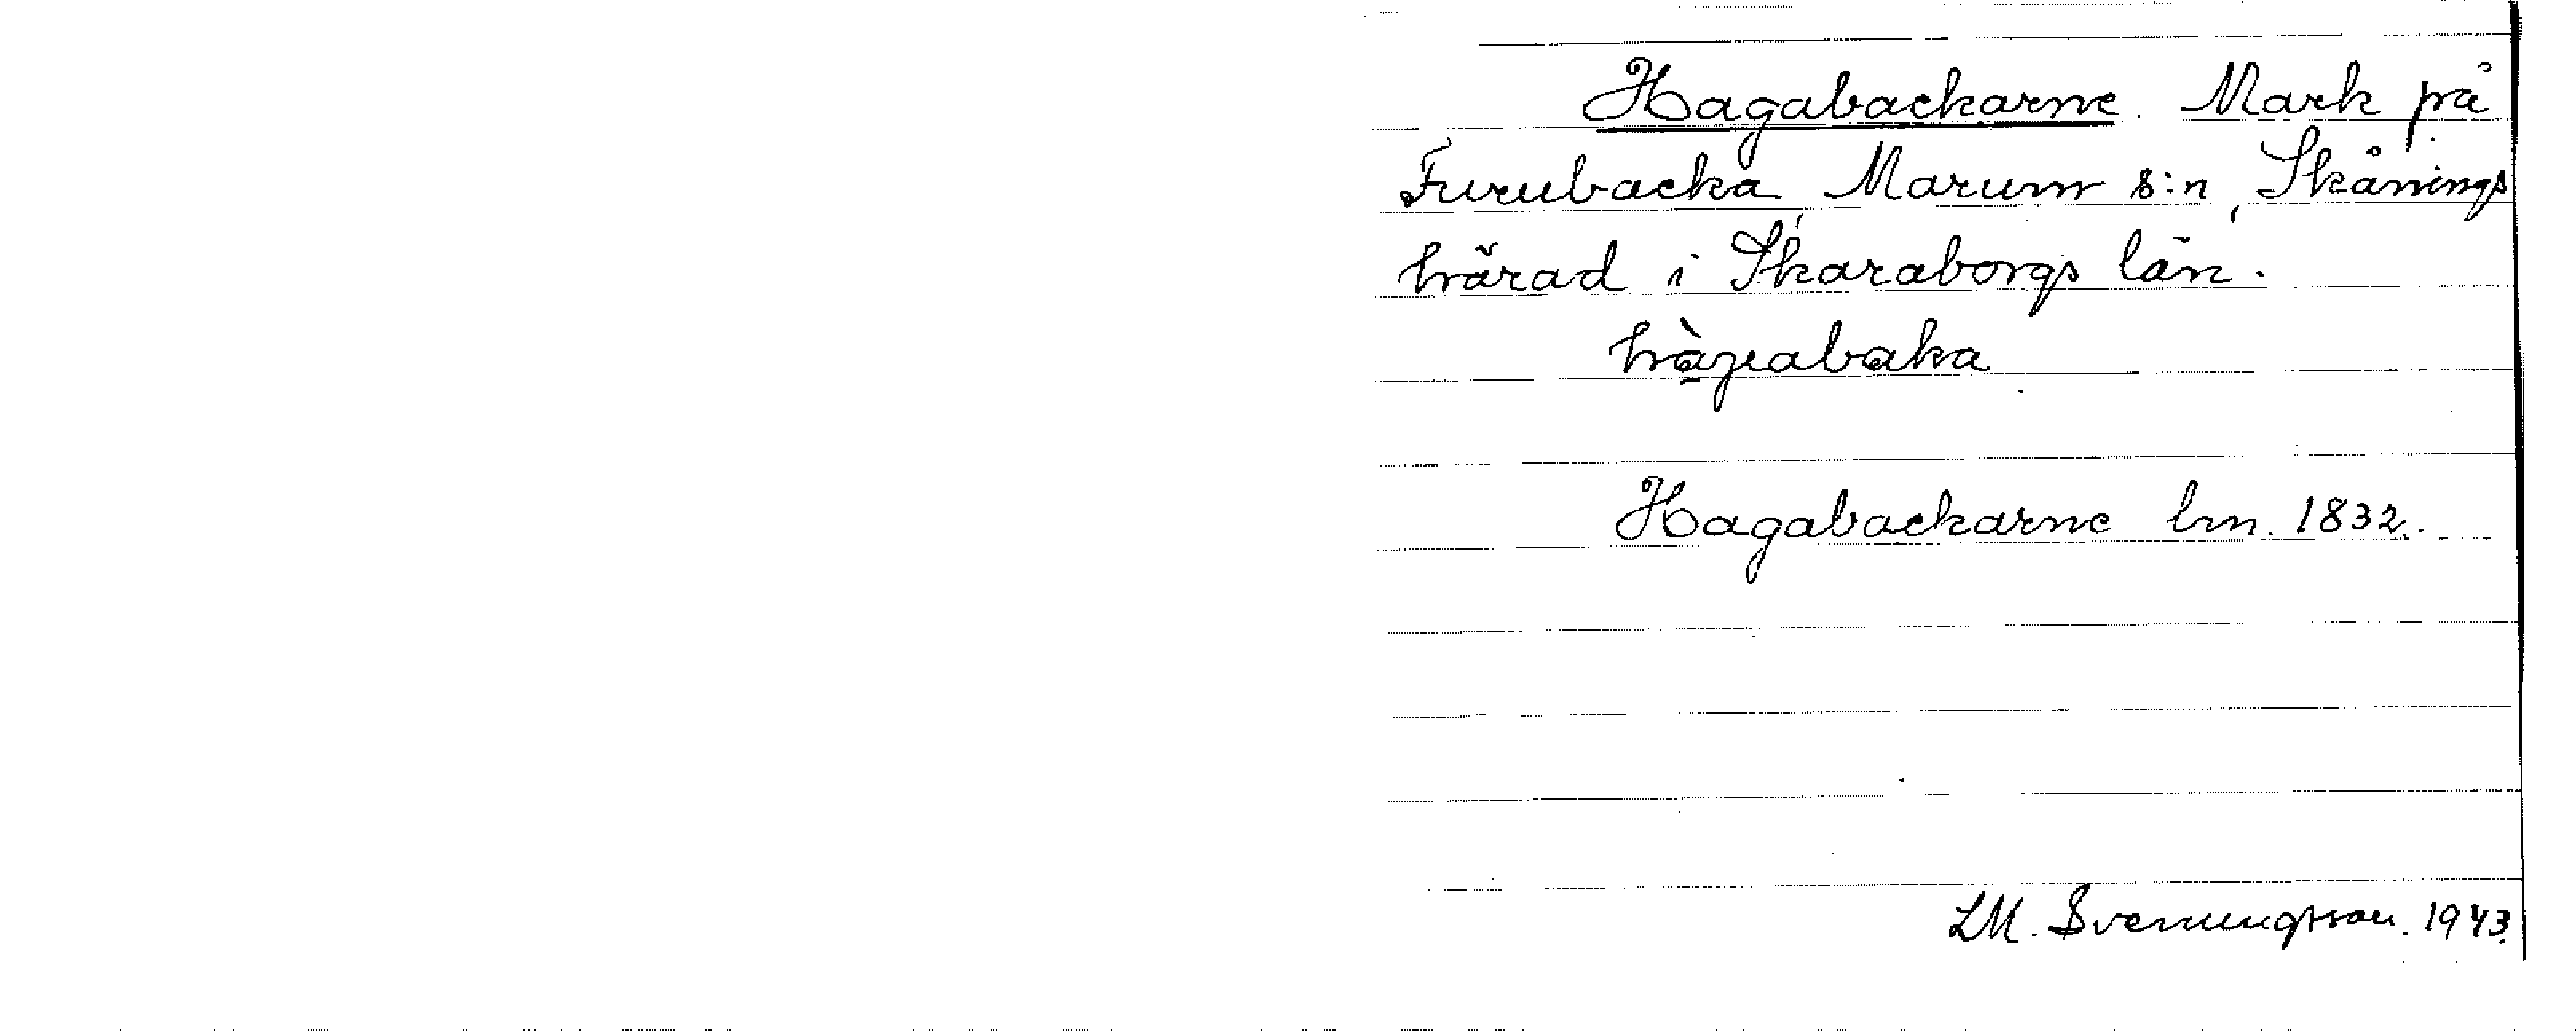 Hagabackarne. Mark på
Furubacka, Marum s:n, Skånings
härad i Skaraborgs län.
Hagabackarne hm. 1832.
LM. Svenungsson. 1943.